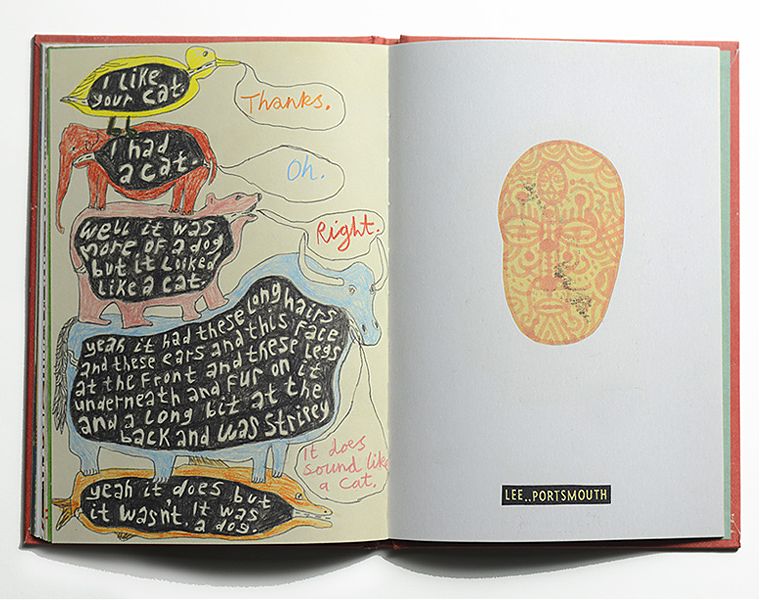 I LIKE
your cat.
Thanks.
I had
a cat.
Oh.
Well it was
more of a dog
but it looked
like a cat.
Right.
yeah it had these long hairs
and these ears and this face
at the front and these legs
underneath and fur on it
and a long bit at the
back and was stripey
It does
sound like
a cat.
yeah it does but
it wasn't. It was
a dog
LEE..PORTSMOUTH